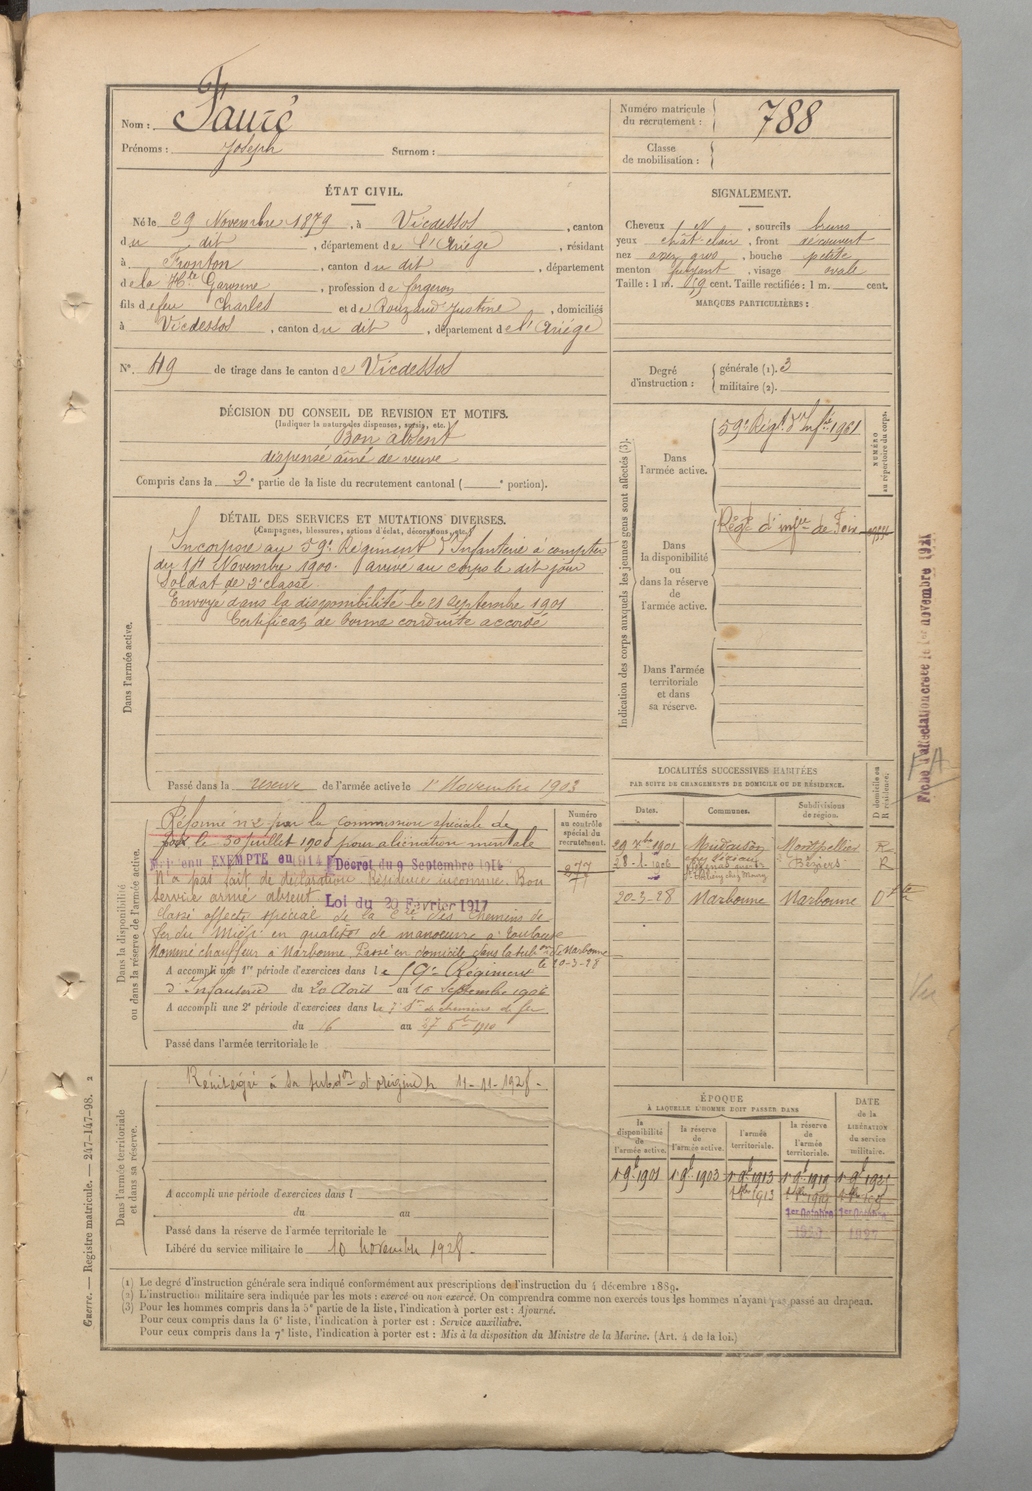 Nom : Fauré
Prénoms : Joseph Surnom :
Numéro matricule du recrutement : 788
Classe de mobilisation :
ÉTAT CIVIL.
Né le 29 Novembre 1879, à Vicdessos, canton
du dit, département de l'Ariège, résidant
à Fronton, canton du dit, département
de la Hte Garonne, profession de forgeron
fils de feu Charles et de Rouzaud Justine, domiciliés
à Vicdessos, canton du dit, département de l'Ariège
N°. 49 de tirage dans le canton de Vicdessos
SIGNALEMENT.
Cheveux , sourcils bruns
yeux chât. clair, front découvert
nez assez gros, bouche petite
menton fuyant, visage ovale
Taille : 1 m. 59 cent. Taille rectifiée : 1 m. cent.
MARQUES PARTICULIÈRES :
Degré d'instruction : générale (1). 3
militaire (2).
DÉCISION DU CONSEIL DE REVISION ET MOTIFS.
(Indiquer la nature des dispenses, sursis, etc.)
Bon absent
dispensé aîné de veuve
Compris dans la 2e partie de la liste du recrutement cantonal ( e portion).
DÉTAIL DES SERVICES ET MUTATIONS DIVERSES.
(Campagnes, blessures, actions d'éclat, décorations, etc.)
Dans l'armée active.
Incorporé au 59e Régiment d'Infanterie à compter
du 14 Novembre 1900. arrivé au corps le dit jour
Soldat de 2e classe
Envoyé dans la disponibilité le 21 septembre 1901
Certificat de bonne conduite accordé
Passé dans la réserve de l'armée active le 1er Novembre 1903
Indication des corps auxquels les jeunes gens sont affectés (3).
NUMÉRO au répertoire du corps.
Dans l'armée active.
59e Régt d'Infrie 1961
Dans la disponibilité ou dans la réserve de l'armée active.
Régt d'infrie de Foix
Dans l'armée territoriale et dans sa réserve.
Fiche d'affectation créée le 1er novembre 1921
FA
Dans la disponibilité ou dans la réserve de l'armée active.
Réforme n°2 par la commission spéciale de
Foix le 30 juillet 1908 pour aliénation mentale
Maintenu EXEMPTÉ en 1914 Décret du 9 Septembre 1914
N'a pas fait de déclaration Résidence inconnue. Bon
service armé absent. Loi du 20 Février 1917
Classé affecté spécial de la Cie des Chemins de
fer du Midi en qualité de manoeuvre à Toulouse
Nommé chauffeur à Narbonne. Passé en domicile dans la subon de Narbonne
le 20-3-28
Numéro au contrôle spécial du recrutement.
277
A accompli une 1re période d'exercices dans le 59e Régiment
d'Infanterie du 20 Août au 16 septembre 1906
A accompli une 2e période d'exercices dans le de chemins de fer
du 16 au 27 1910
Passé dans l'armée territoriale le
LOCALITÉS SUCCESSIVES HABITÉES
PAR SUITE DE CHANGEMENTS DE DOMICILE OU DE RÉSIDENCE.
Dates. Communes. Subdivisions de région. D domicile ou R résidence.
29 1901 Mudaison Montpellier R
28-1-1906 Béziers R
20-3-28 Narbonne Narbonne
Dans l'armée territoriale et dans sa réserve.
Réintégré à sa subdon d'origine le 11-11-1928.
A accompli une période d'exercices dans l
du au
Passé dans la réserve de l'armée territoriale le
Libéré du service militaire le 10 novembre 1928.
ÉPOQUE
À LAQUELLE L'HOMME DOIT PASSER DANS
DATE de la LIBÉRATION du service militaire.
la disponibilité de l'armée active. la réserve de l'armée active. l'armée territoriale. la réserve de l'armée territoriale.
1 9b 1901 1 9b 1903 1 9b 1913 1 9b 1919 1 9b 1925
1913
1er Octobre 1er Octobre
Guerre. — Registre matricule. — 247-147-98. 2
(1) Le degré d'instruction générale sera indiqué conformément aux prescriptions de l'instruction du 4 décembre 1889.
(2) L'instruction militaire sera indiquée par les mots : exercé ou non exercé. On comprendra comme non exercés tous les hommes n'ayant pas passé au drapeau.
(3) Pour les hommes compris dans la 5e partie de la liste, l'indication à porter est : Ajourné.
Pour ceux compris dans la 6e liste, l'indication à porter est : Service auxiliaire.
Pour ceux compris dans la 7e liste, l'indication à porter est : Mis à la disposition du Ministre de la Marine. (Art. 4 de la loi.)